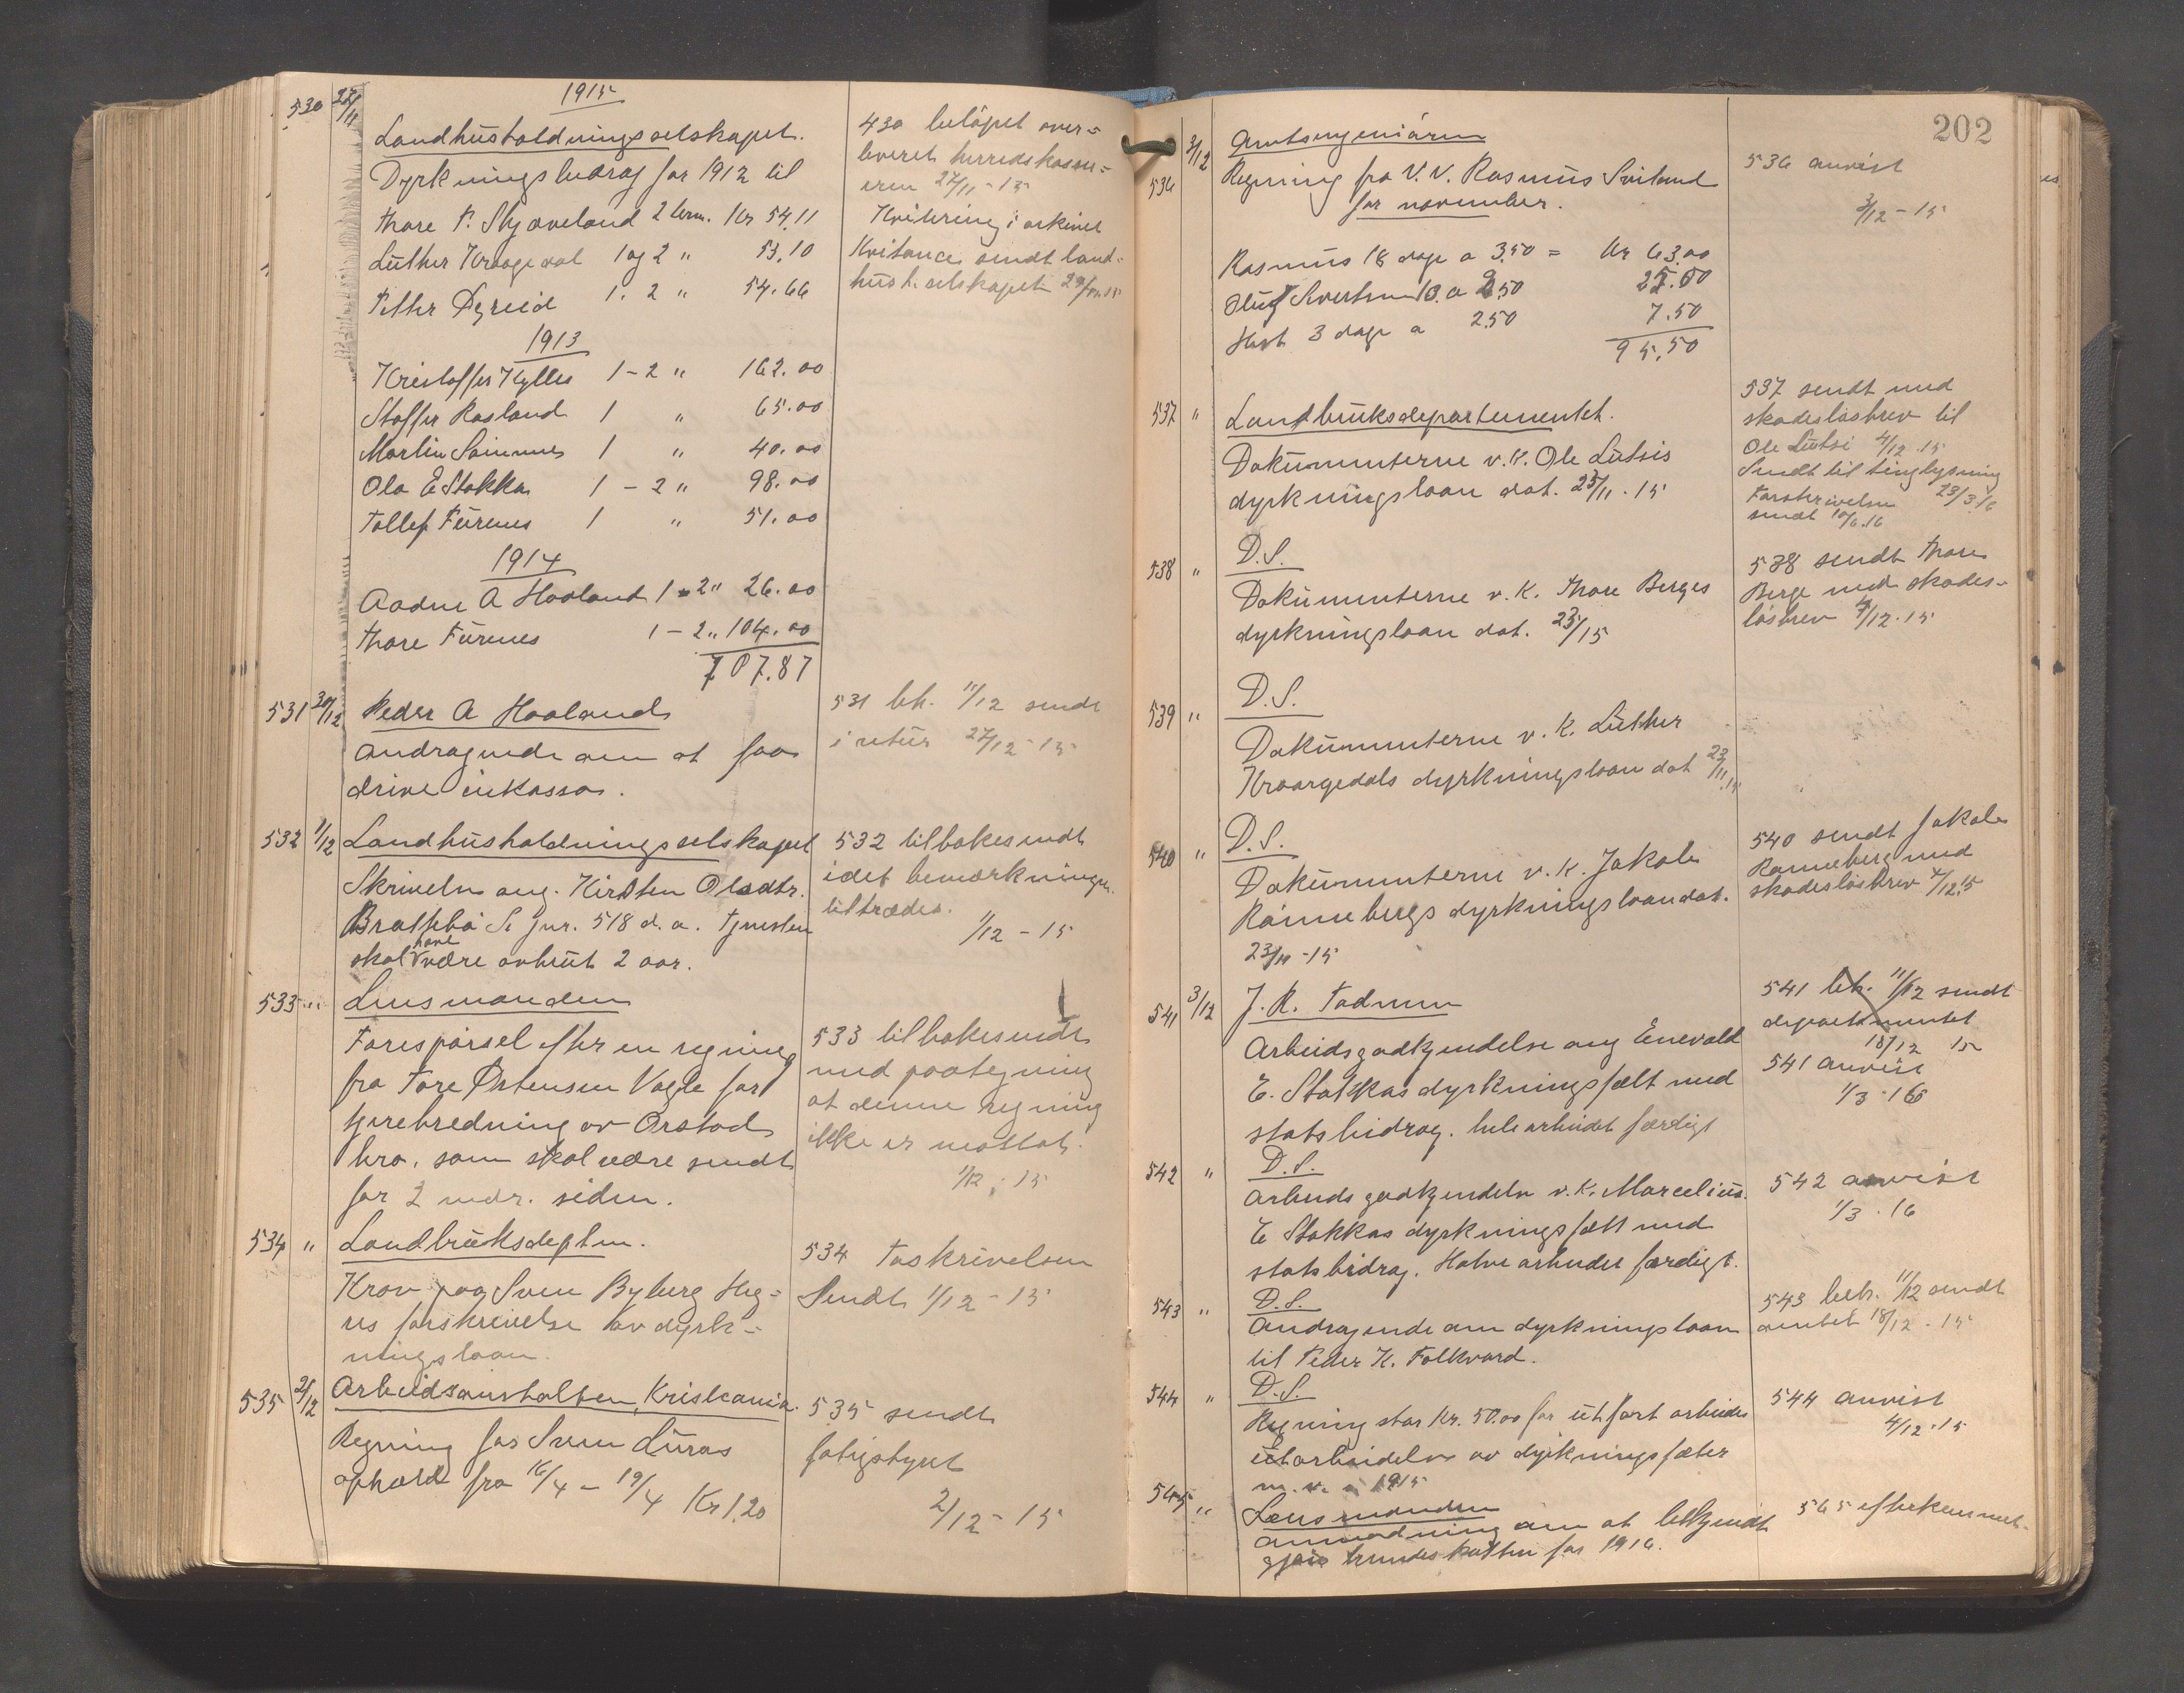 1915
530 27/11
Landhusholdningsselskapet.
Dyrkningsbidrag for 1912 til
Thore P. Skjæveland 2 term. Kr 54,11
Luther Kraagedal 1 og 2 " 53,10
Petter Dyreid 1. 2 " 54.66
1913
Kristoffer Kylles 1 – 2 " 162.00
Stoffer Rosland 1 " 65.00
Martin Sømmes 1 " 40.00
Ola E Stokka 1 – 2 " 98.00
Tollef Furenes 1 " 51.00
1914
Aadne A Haaland 1 – 2 " 26.00
Thore Furenes 1 – 2 " 104.00
707.87
430 beløpet over=
leveret herredskasse=
reren 27/11 - 15
Kvitering i arkivet
Kvitance sendt land=
hush. selskapet 29/11.15
531 30/12 Peder A Haaland
Andragende om at faa
drive inkasso.
531 beh. 11/12 sendt
i retur 27/12 - 15
532 1/12 Landhusholdningsselskapet
Skrivelse ang. Kirsten Olsdtr.
Brattebø Se jnr. 518 d. a. Tjenesten
have
skal være avbrut 2 aar.
532 tilbakesendt
idet bemærkningen
tiltrædes.
1/12 - 15
533 " Lensmanden
Forespørsel efter en regning
fra Tore Østensen Vagle for
gjerebredning av Orstad
bro, som skal være sendt
for 2 mdr. siden.
533 tilbakesendt
med paategning
at denne regning
ikke er mottat.
1/12 . 15
534 " Landbruksdeptm.
Krav paa Sven Byberg Heg=
res forskrivelse av dyrk=
ningslaan.
534 Foskrivelsen
Sendt 1/12 - 15
535 2/12 Arbeidsanstalten, Kristiania.
Regning for Sven Luras
ophold fra 16/4 – 19/4 Kr 1.20
535 sendt
fatigstyret
2/12 - 15
202
3/12 Amtsingeniøren
536 Regning fra V. V. Rasmus Sviland
for november.
Rasmus 18 dage a 3,50 = Kr 63,00
Oluf Sivertsen 10 a 2,50 25.00
Hest 3 dage a 2,50 7.50
95,50
536 anvist
3/12 - 15
537 " Landbruksdepartementet.
Dokumenterne v. k. Ole Lutsis
dyrkningslaan dat. 23/11 . 15
537 sendt med
skadesløsbrev til
Ole Lutsi 4/12 . 15
Sendt til tinglysning
23/3 16
Forskrivelsen
sendt 10/6.16
538 " D.S.
Dokumenterne v. k. Thore Berges
dyrkningslaan dat. 23/15
538 sendt Thore
Berge med skades=
løsbrev 4/12 . 15
539 " D.S.
Dokumenterne v. k. Luther
Kraagedals dyrkningslaan dat 23/11.15
540 " D.S.
Dokumenterne v. k. Jakob
Rønnebergs dyrkningslaan dat.
23/11 - 15
540 sendt Jakob
Rønneberg med
skadesløsbrev 4/12.15
541 3/12 J. R. Tadnem
Arbeidsgodkjendelse ang Enevald
E. Stokkas dyrkningsfelt med
statsbidrag. hele arbeidet færdigt
541 beh. 11/12 sendt
departementet
18/12 15
541 anvist
1/3 . 16
542 " D.S.
Arbeidsgodkjendelse v. k. Marcelius
E Stokkas dyrkningsfelt med
statsbidrag. Halve arbeidet færdigt.
542 anvist
1/3 . 16
543 " D.S.
Andragende om dyrkningslaan
til Peder K. Folkvord.
543 beh. 11/12 sendt
amtet 18/12 . 15
544 " D.S.
Regning stor Kr. 50.00 for utført arbeide
utarbeidelse av dyrkningsfelter
m. v. 1915
544 anvist
4/12 . 15
545 " Lensmanden
Anmodning om at bekjendt
gjøre hundeskatten for 1916.
545 efterkommet.